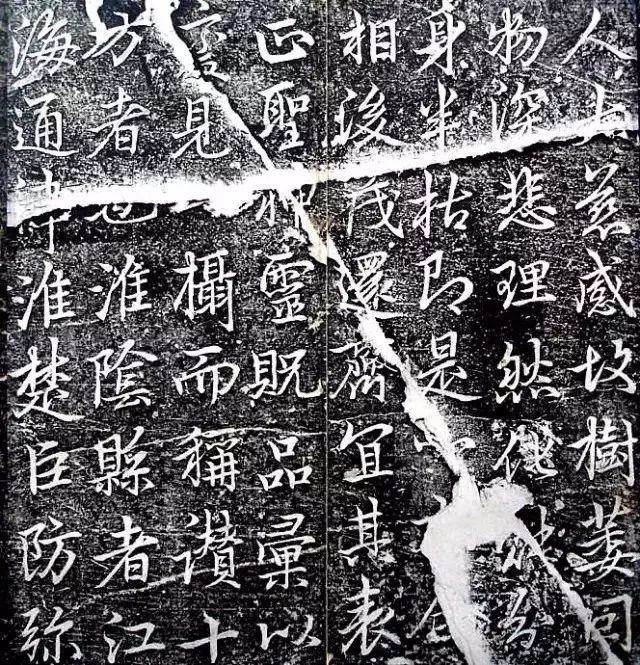 人大慈感故樹萎同
物深悲理然
身半枯即是
相後茂還齊宜其表
正聖神靈貺品彙以
變見攝而稱讚十
方者也淮陰縣者江
海通津淮楚巨防彌